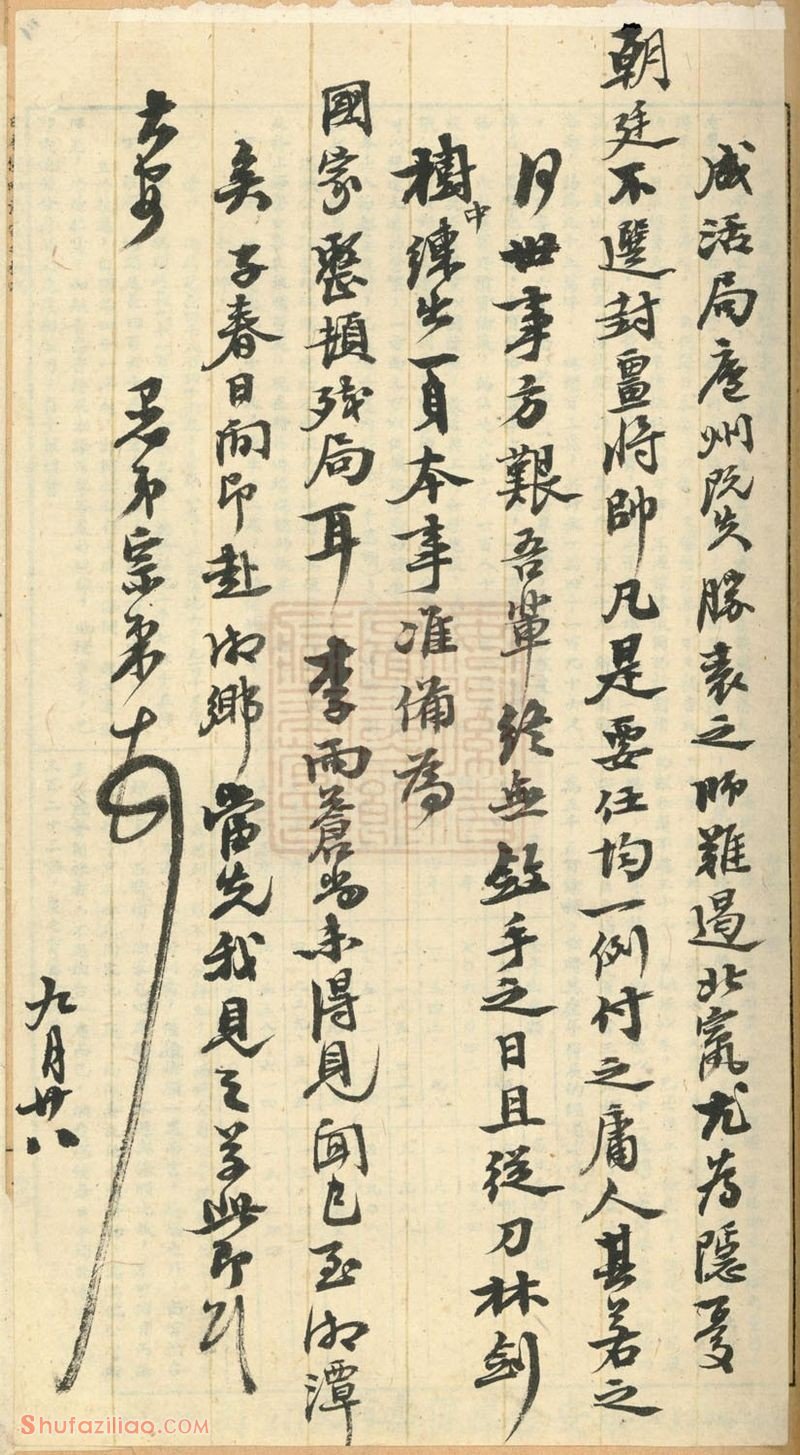 成活局廬州既失勝袁之師難遏北竄尤為隱憂
朝廷不選封畺將帥凡是要任均一例付之庸人其若之
何世事方艱吾輩終無斂手之日且從刀林劍
樹中練出一身本事準備為
國家整頓殘局耳李雨蒼尚未得見聞已至湘潭
矣子春日間即赴湘鄉當先我見之草此即頌
大安 愚弟宗棠
九月廿八
Shufaziliao.COM